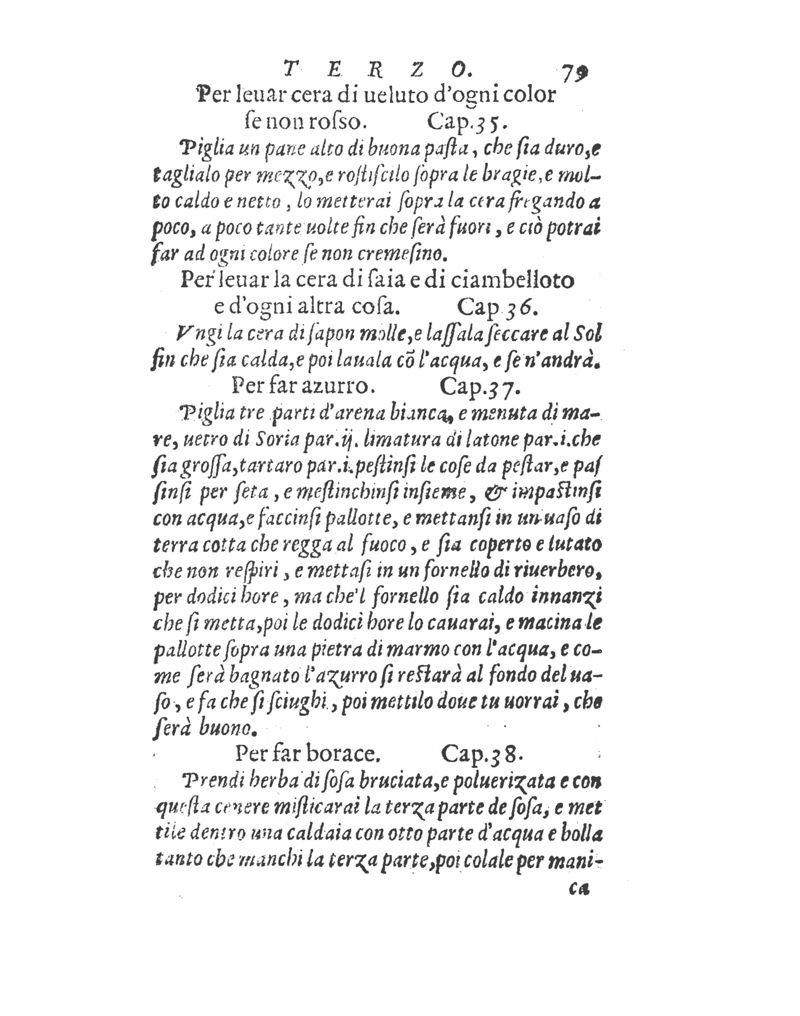 T E R Z O. 79
Per leuar cera di ueluto d'ogni color
ſe non roſſo. Cap.35.
Piglia un pane alto di buona paſta, che ſia duro,e
taglialo per mezzo,e roſtiſcilo ſopra le bragie,e mol-
to caldo e netto, lo metterai ſopra la cera fregando a
poco, a poco tante uolte fin che ſerà fuori, e ciò potrai
far ad ogni colore ſe non cremeſino.
Per leuar la cera di ſaia e di ciambelloto
e d'ogni altra coſa. Cap 36.
Vngi la cera di ſapon molle,e laſſala ſeccare al Sol
fin che ſia calda,e poi lauala cõ l'acqua, e ſe n'andrà.
Per far azurro. Cap.37.
Piglia tre parti d'arena bianca, e menuta di ma-
re, uetro di Soria par.ij. limatura di latone par.i.che
ſia groſſa,tartaro par.i.peſtinſi le coſe da peſtar,e paſ
ſinſi per ſeta, e meſtinchinſi inſieme, & impaſtinſi
con acqua,e faccinſi pallotte, e mettanſi in un uaſo di
terra cotta che regga al fuoco, e ſia coperto e lutato
che non reſpiri, e mettaſi in un fornello di riuerbero,
per dodici hore, ma che'l fornello ſia caldo innanzi
che ſi metta,poi le dodici hore lo cauarai, e macina le
pallotte ſopra una pietra di marmo con l'acqua, e co-
me ſerà bagnato l'azurro ſi reſtarà al fondo del ua-
ſo, e fa che ſi ſciughi, poi mettilo doue tu uorrai, che
ſerà buono.
Per far borace. Cap.38.
Prendi herba di ſoſa bruciata,e poluerizata e con
queſta cenere miſticarai la terza parte de ſoſa, e met
tile dentro una caldaia con otto parte d'acqua e bolla
tanto che manchi la terza parte,poi colale per mani-
ca